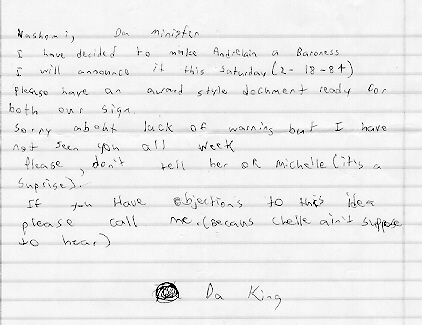 Nashomi, Da minipfen
I have decided to make Andrelain a Baroness
I will announce it this Saturday (2-18-84)
please have an award style dochment ready for
both our sign.
Sorry about lack of warning but I have
not seen you all week
Please, don't tell her OR Michelle (it's a
Suprise).
If you Have objections to this idea
please call me. (Becaus Chelle ain't suppose
to hear)
Da King